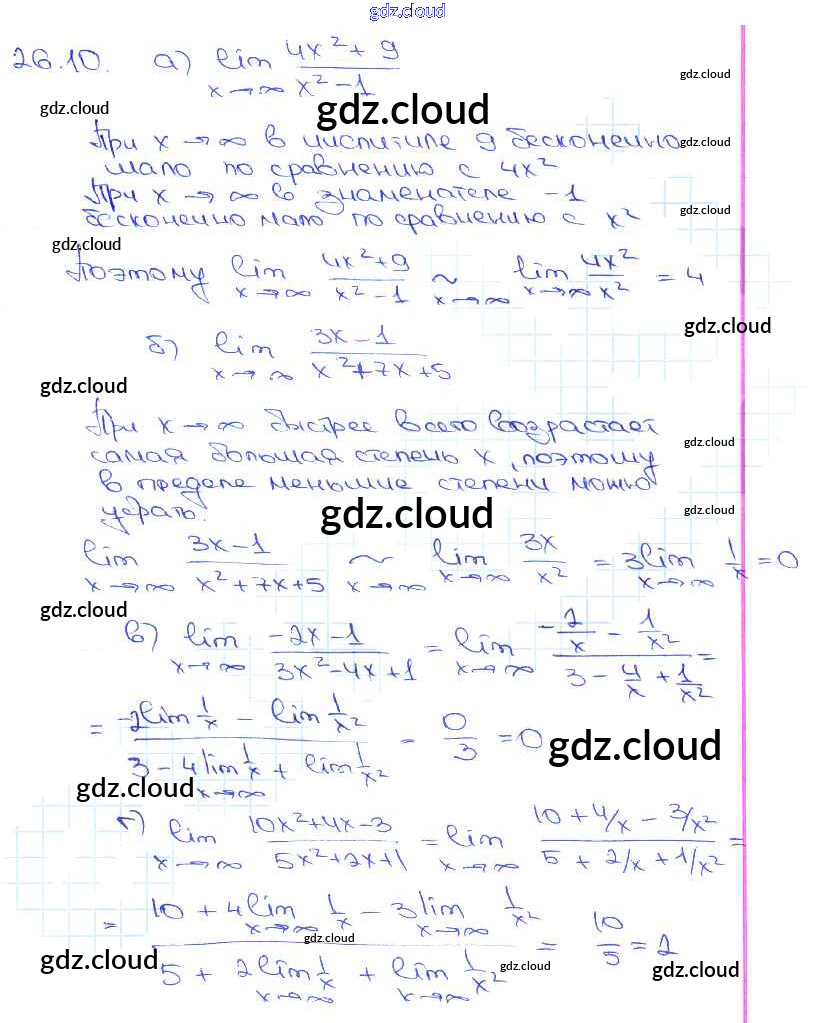 gdz.cloud
26.10. а) lim (4x² + 9)/(x² − 1) x→∞
gdz.cloud
gdz.cloud
gdz.cloud
При x → ∞ в числителе 9 бесконечно
мало по сравнению с 4x²
При x → ∞ в знаменателе −1
gdz.cloud
бесконечно мало по сравнению с x²
gdz.cloud
Поэтому lim x→∞ (4x²+9)/(x²−1) ~ x→∞ lim x→∞ 4x²/x² = 4
gdz.cloud
б) lim x→∞ (3x − 1)/(x²+7x+5)
gdz.cloud
При x → ∞ быстрее всего возрастает
gdz.cloud
самая большая степень x, поэтому
в пределе меньшие степени можно
gdz.cloud
убрать.
gdz.cloud
lim x→∞ (3x−1)/(x²+7x+5) ~ x→∞ lim x→∞ 3x/x² = 3 lim x→∞ 1/x = 0
gdz.cloud
в) lim x→∞ (−2x−1)/(3x²−4x+1) = lim x→∞ (−2/x − 1/x²)/(3 − 4/x + 1/x²) =
= (−2 lim 1/x − lim 1/x²)/(3 − 4 lim x→∞ 1/x + lim 1/x²) = 0/3 = 0
gdz.cloud
gdz.cloud
г) lim x→∞ (10x²+4x−3)/(5x²+2x+1) = lim x→∞ (10 + 4/x − 3/x²)/(5 + 2/x + 1/x²) =
= (10 + 4 lim x→∞ 1/x − 3 lim x→∞ 1/x²)/(5 + 2 lim x→∞ 1/x + lim x→∞ 1/x²) = 10/5 = 2
gdz.cloud
gdz.cloud
gdz.cloud
gdz.cloud